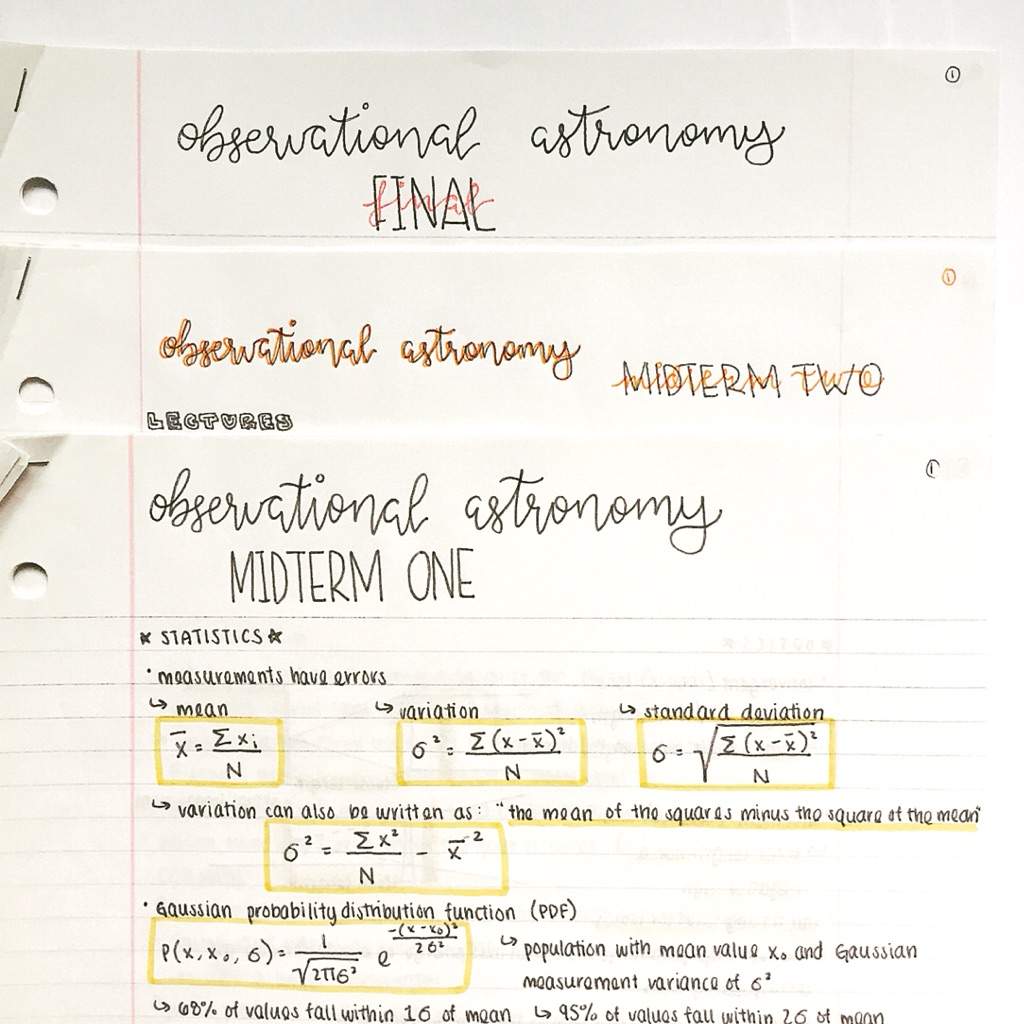 ①
observational astronomy
FINAL
final
①
observational astronomy
MIDTERM TWO
midterm two
LECTURES
①
observational astronomy
MIDTERM ONE
★ STATISTICS ★
• measurements have errors
↳ mean ↳ variation ↳ standard deviation
x̄ = Σxᵢ / N σ² = Σ(x-x̄)² / N σ = √(Σ(x-x̄)² / N)
↳ variation can also be written as: "the mean of the squares minus the square of the mean"
σ² = Σx² / N - x̄²
• Gaussian probability distribution function (PDF)
P(x, x₀, σ) = 1/√(2πσ²) e^(-(x-x₀)²/2σ²) ↳ population with mean value x₀ and Gaussian
measurement variance of σ²
↳ 68% of values fall within 1σ of mean ↳ 95% of values fall within 2σ of mean